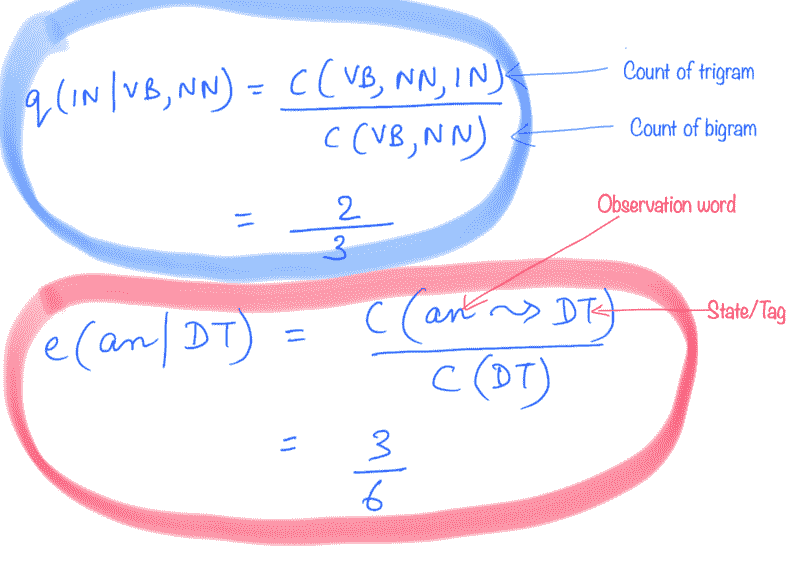 q(IN|VB,NN) = C(VB,NN,IN)
Count of trigram
C(VB,NN)
Count of bigram
= 2
3
Observation word
e(an|DT) = C(an ⤳ DT)
State/Tag
C(DT)
= 3
6